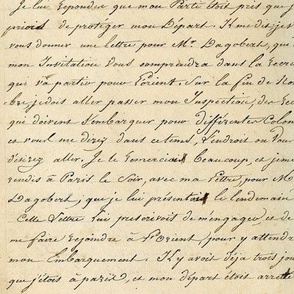 je lui repondis que mon Parti était pris que je
priois de proteger mon Départ. Il me dis je v
vous donner une lettre pour Mr. Dagobert, qui
mon Invitation vous comprendra dans la recrue
qui va partir pour l'orient. Sur la fin de No
bre je dois aller passer mon Inspection, des rec
qui doivent s'embarquer pour differentes Colon
et vous me direz dans ce tems, l'endroit ou vou
désirez aller. Je le remerciai Beaucoup, et jeme
rendis à Paris le Soir, avec ma lettre, pour M
Dagobert, que je lui presentai le lendemain
Cette lettre lui prescrivoit de m'engager, et de
me faire rejoindre à l'orient, pour y attendre
mon Embarquement. Il y avoit déja trois jou
que j'étois à paris, et mon départ étoit arreté